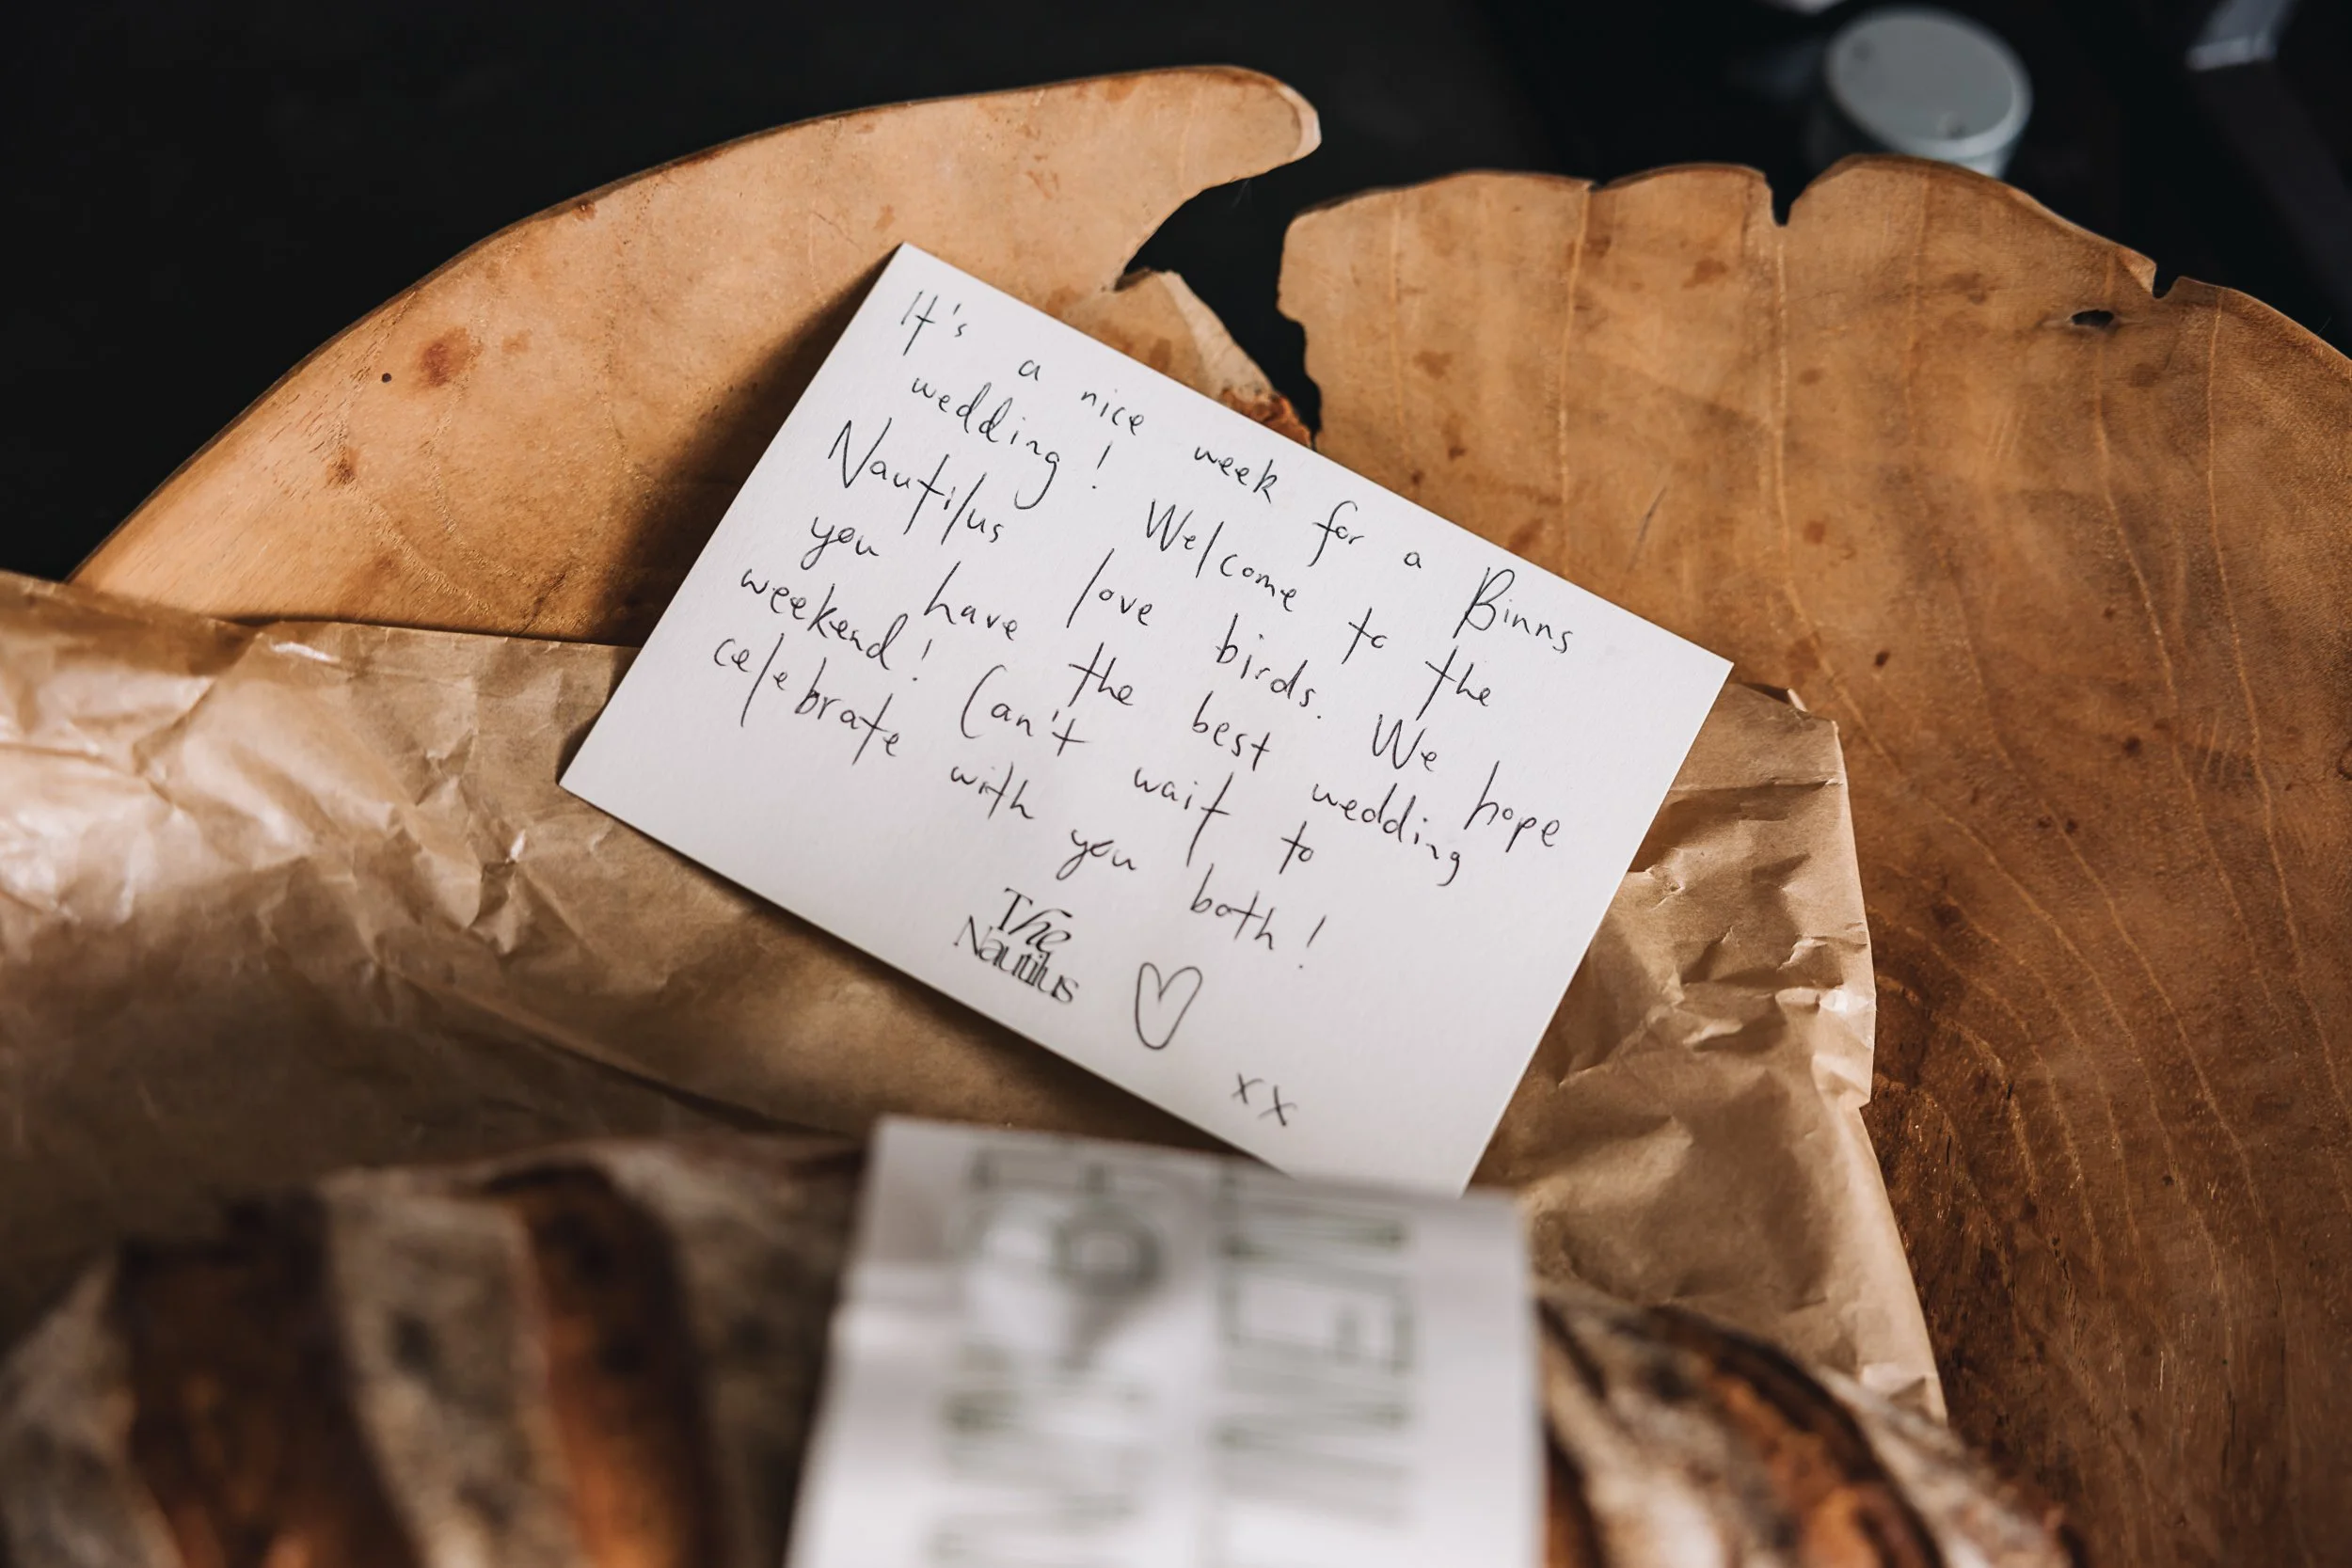 It's a nice week for a Binns
wedding! Welcome to the
Nautilus love birds. We hope
you have the best wedding
weekend! Can't wait to
celebrate with you both!
The
Nautilus
xx